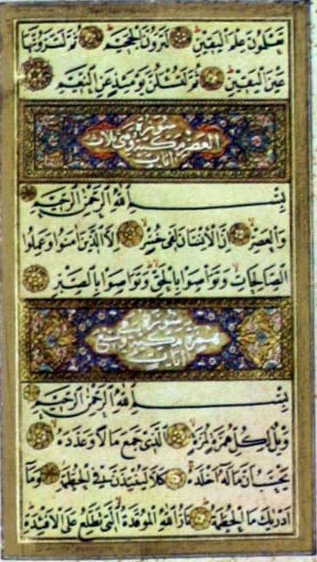 تعلمون علم اليقين لترون الجحيم ثم لترونها
عين اليقين ثم لتسئلن يومئذ عن النعيم
سورة
العصر مكية وهي ثلاث
آيات
بسم الله الرحمن الرحيم
والعصر ان الانسان لفى خسر الا الذين امنوا وعملوا
الصالحات وتواصوا بالحق وتواصوا بالصبر
سورة
همزة مكية وهي تسع
آيات
بسم الله الرحمن الرحيم
ويل لكل همزة لمزة الذى جمع مالا وعدده
يحسب ان ماله اخلده كلا لينبذن فى الحطمة وما
ادريك ما الحطمة نار الله الموقدة التى تطلع على الافئدة